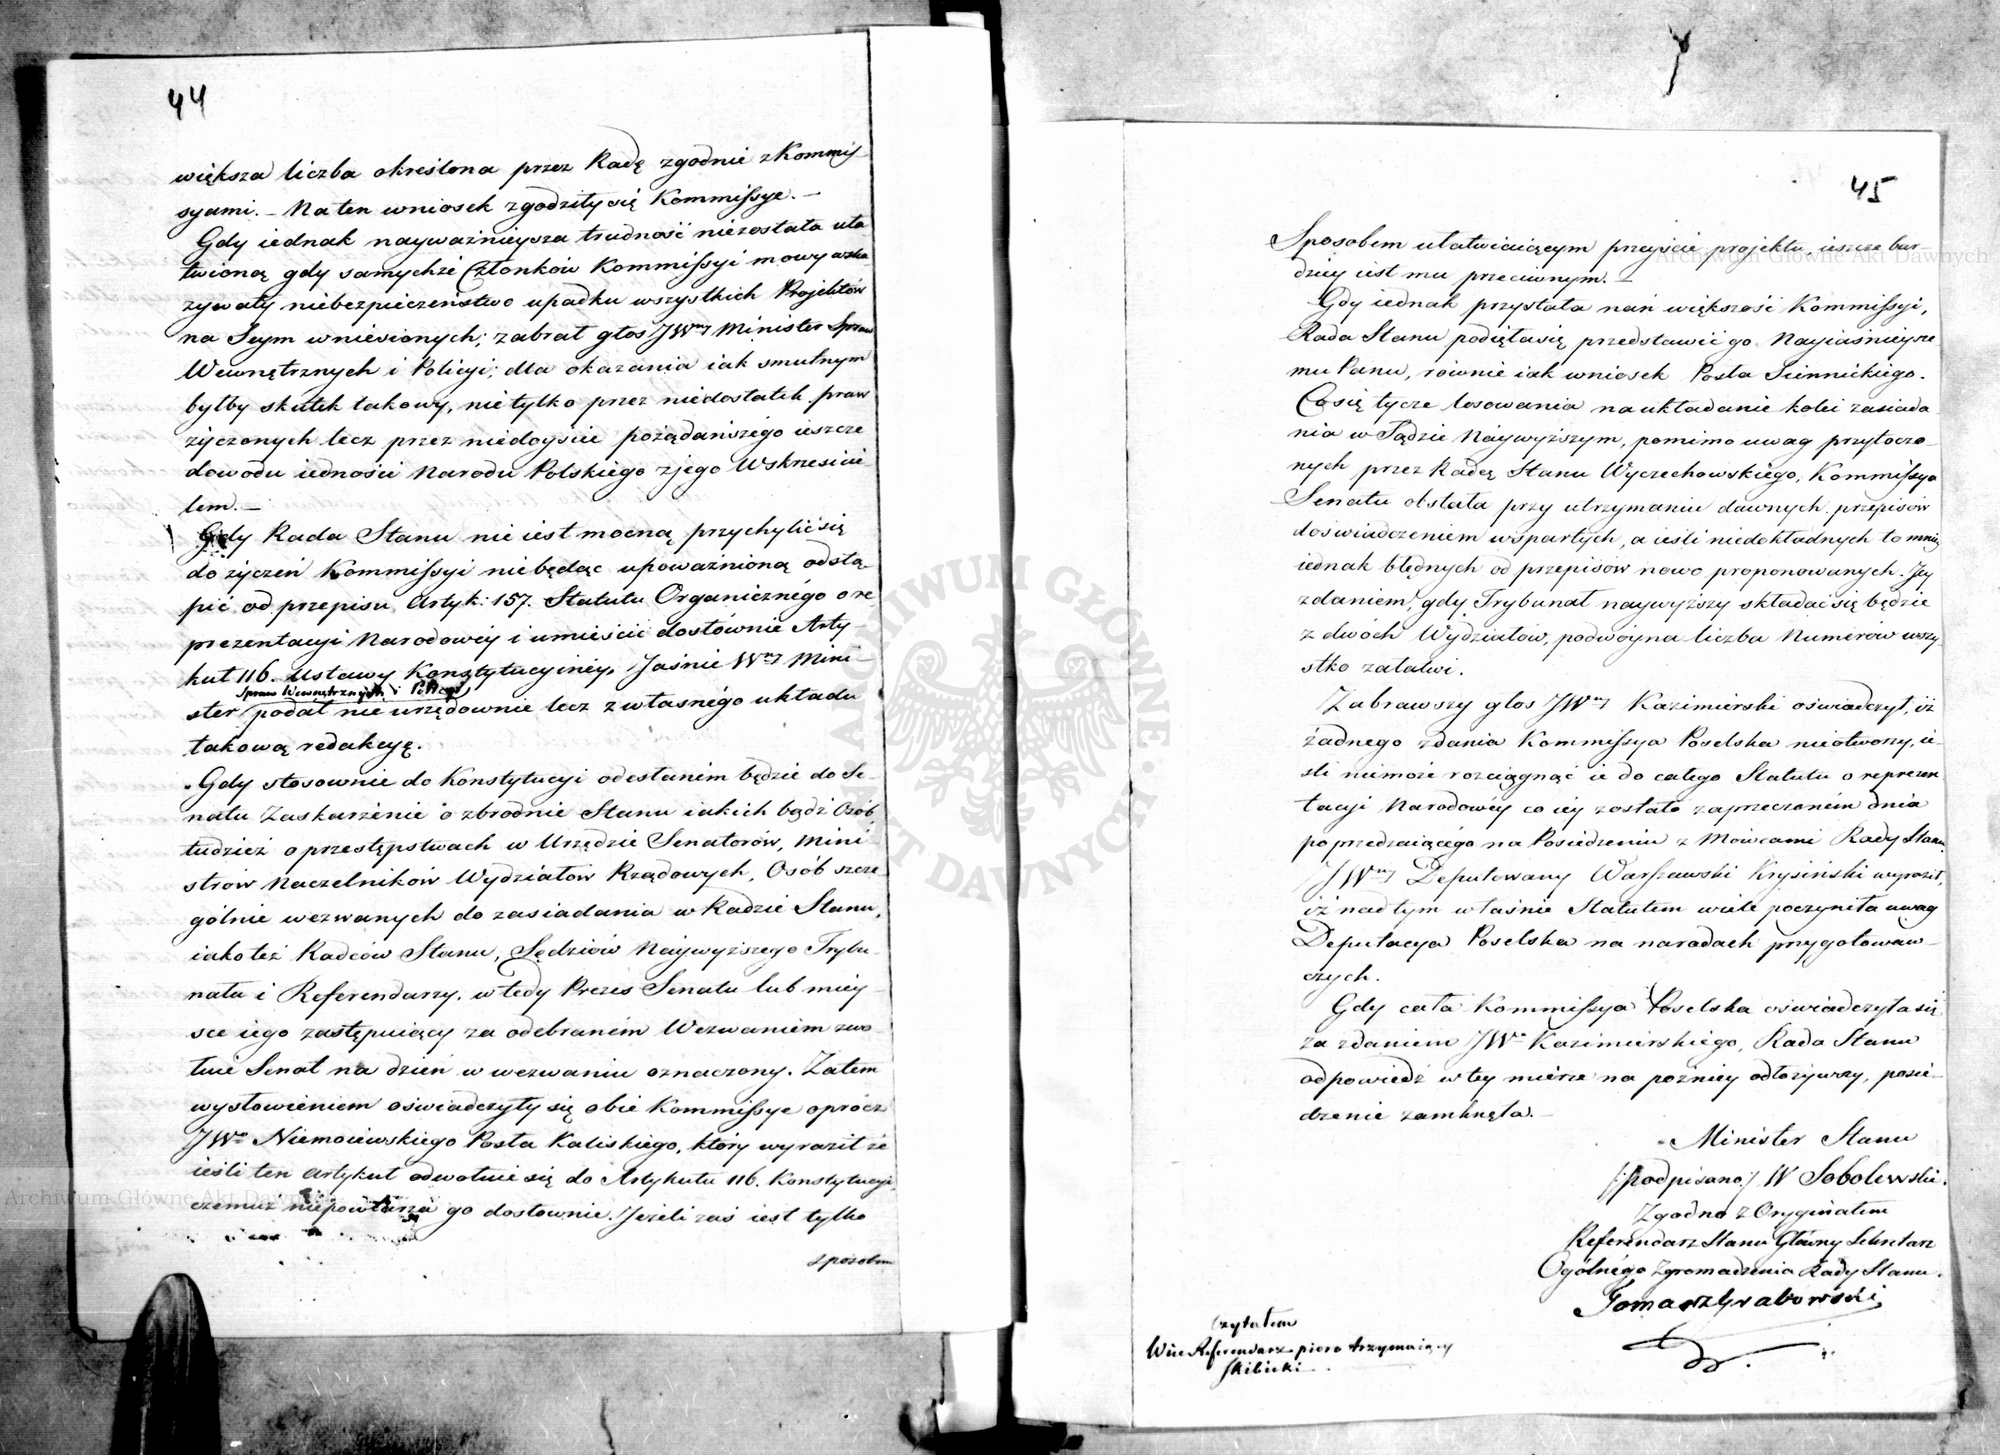 44
większa liczba określona przez Radę zgodnie z Kommis-
syami. – Na ten wniosek zgodziły się Kommissye. –
Gdy iednak nayważnieysza trudność niezostała uła
twioną gdy samychże Członków Kommissyi mowy wska
zywały niebezpieczeństwo upadku wszystkich Projektów
na Seym wniesionych; zabrał głos JWny Minister Spraw
Wewnętrznych i Policyi; dla okazania iak smutnym
byłby skutek takowy, nie tylko przez niedostatek praw
życzonych lecz przez niedoyście pożądańszego ieszcze
dowodu iedności Narodu Polskiego z jego Wskrzesicie
lem. –
Gdy Rada Stanu nie iest mocną przychylić się
do życzeń Kommissyi nie będąc upoważnioną odstą-
pić od przepisu Artyk: 157. Statutu Organicznégo o re
prezentacyi Narodowéy i umieścić dosłównie Arty-
kuł 116. Ustawy Konstytucyinéy, Jaśnie Wny Mini-
Spraw Wewnętrznych i Policyi
ster podał nie urzędownie lecz z własnégo układu
takową redakcyę.
„Gdy stosownie do Konstytucyi odesłaném będzie do Se-
natu Zaskarżenie o zbrodnie Stanu iakich bądź Osób,
tudzież o przestępstwach w Urzędzie Senatorów, Mini
strów Naczelników Wydziałów Rządowych, Osób szcze
gólnie wezwanych do zasiadania w Radzie Stanu,
iako też Radców Stanu, Sędziów Naywyższego Trybu-
nału i Referendarzy, w tedy Prezes Senatu lub miey-
sce iego zastępuiący za odebraném Wezwaniem zwo
łuie Senat na dzień w wezwaniu oznaczony. Za tém
wysłowieniem oświadczyły się obie Kommissye oprócz
JWo Niemoiewskiego Posła Kaliskiego, który wyraził że
ieśli ten artykuł odwołuie się do Artykułu 116. Konstytucyi
czemuż niepowtarza go dosłownie. Jeżeli zaś iest tylko
sposobem
45
Sposobem ułatwiaiącym przeyście projektu, ieszcze bar-
dziey iest mu przeciwnym. –
Gdy iednak przystała nań większość Kommissyi,
Rada Stanu podięła się przedstawić go Nayiaśnieysze
mu Panu, równie iak wniosek Posła Siennickiego.
Co się tycze losowania na układanie kolei zasiada-
nia w Sądzie Naywyższym, pomimo uwag przytoczo-
nych przez Radcę Stanu Wyczechowskiego, Kommissya
Senatu obstała przy utrzymaniu dawnych przepisów
doświadczeniem wspartych, a ieśli niedokładnych to mniéy
iednak błędnych od przepisów nowo proponowanych. Jey
zdaniem, gdy Trybunał naywyższy składać się będzie
z dwóch Wydziałów, podwóyna liczba Numerów wszy-
stko załatwi.
Zabrawszy głos JWny Kazimierski oświadczył, iż
żadnego zdania Kommissya Poselska nie otworzy, ie-
śli nie może rozciągnąć ie do całego Statutu o reprezen
tacyi Narodowéy co iéy zostało zaprzeczoném dnia
poprzedzaiącégo na Posiedzeniu z Mówcami Rady Stanu
JWny Deputowany Warszawski Krysiński wyraził,
iż nad tym właśnie Statutem wiele poczyniła uwag
Deputacya Poselska na naradach przygotowaw-
czych.
Gdy cała Kommissya Poselska oświadczyła się
za zdaniem JWo Kazimierskiego, Rada Stanu
odpowiedź w tey mierze na poźniey odłożywszy, posie-
dzenie zamknęła. –
Minister Stanu
/:podpisano:/ W Sobolewski.
Zgodno z Oryginałem
Referendarz Stanu Główny Sekretarz
Ogólnégo Zgromadzenia Rady Stanu.
Tomasz Grabowski
Czytałem
Wice Referendarz pioro trzymaiący
Skibicki
ARCHIWUM GŁÓWNE AKT DAWNYCH
Archiwum Główne Akt Dawnych
Archiwum Główne Akt Dawnych